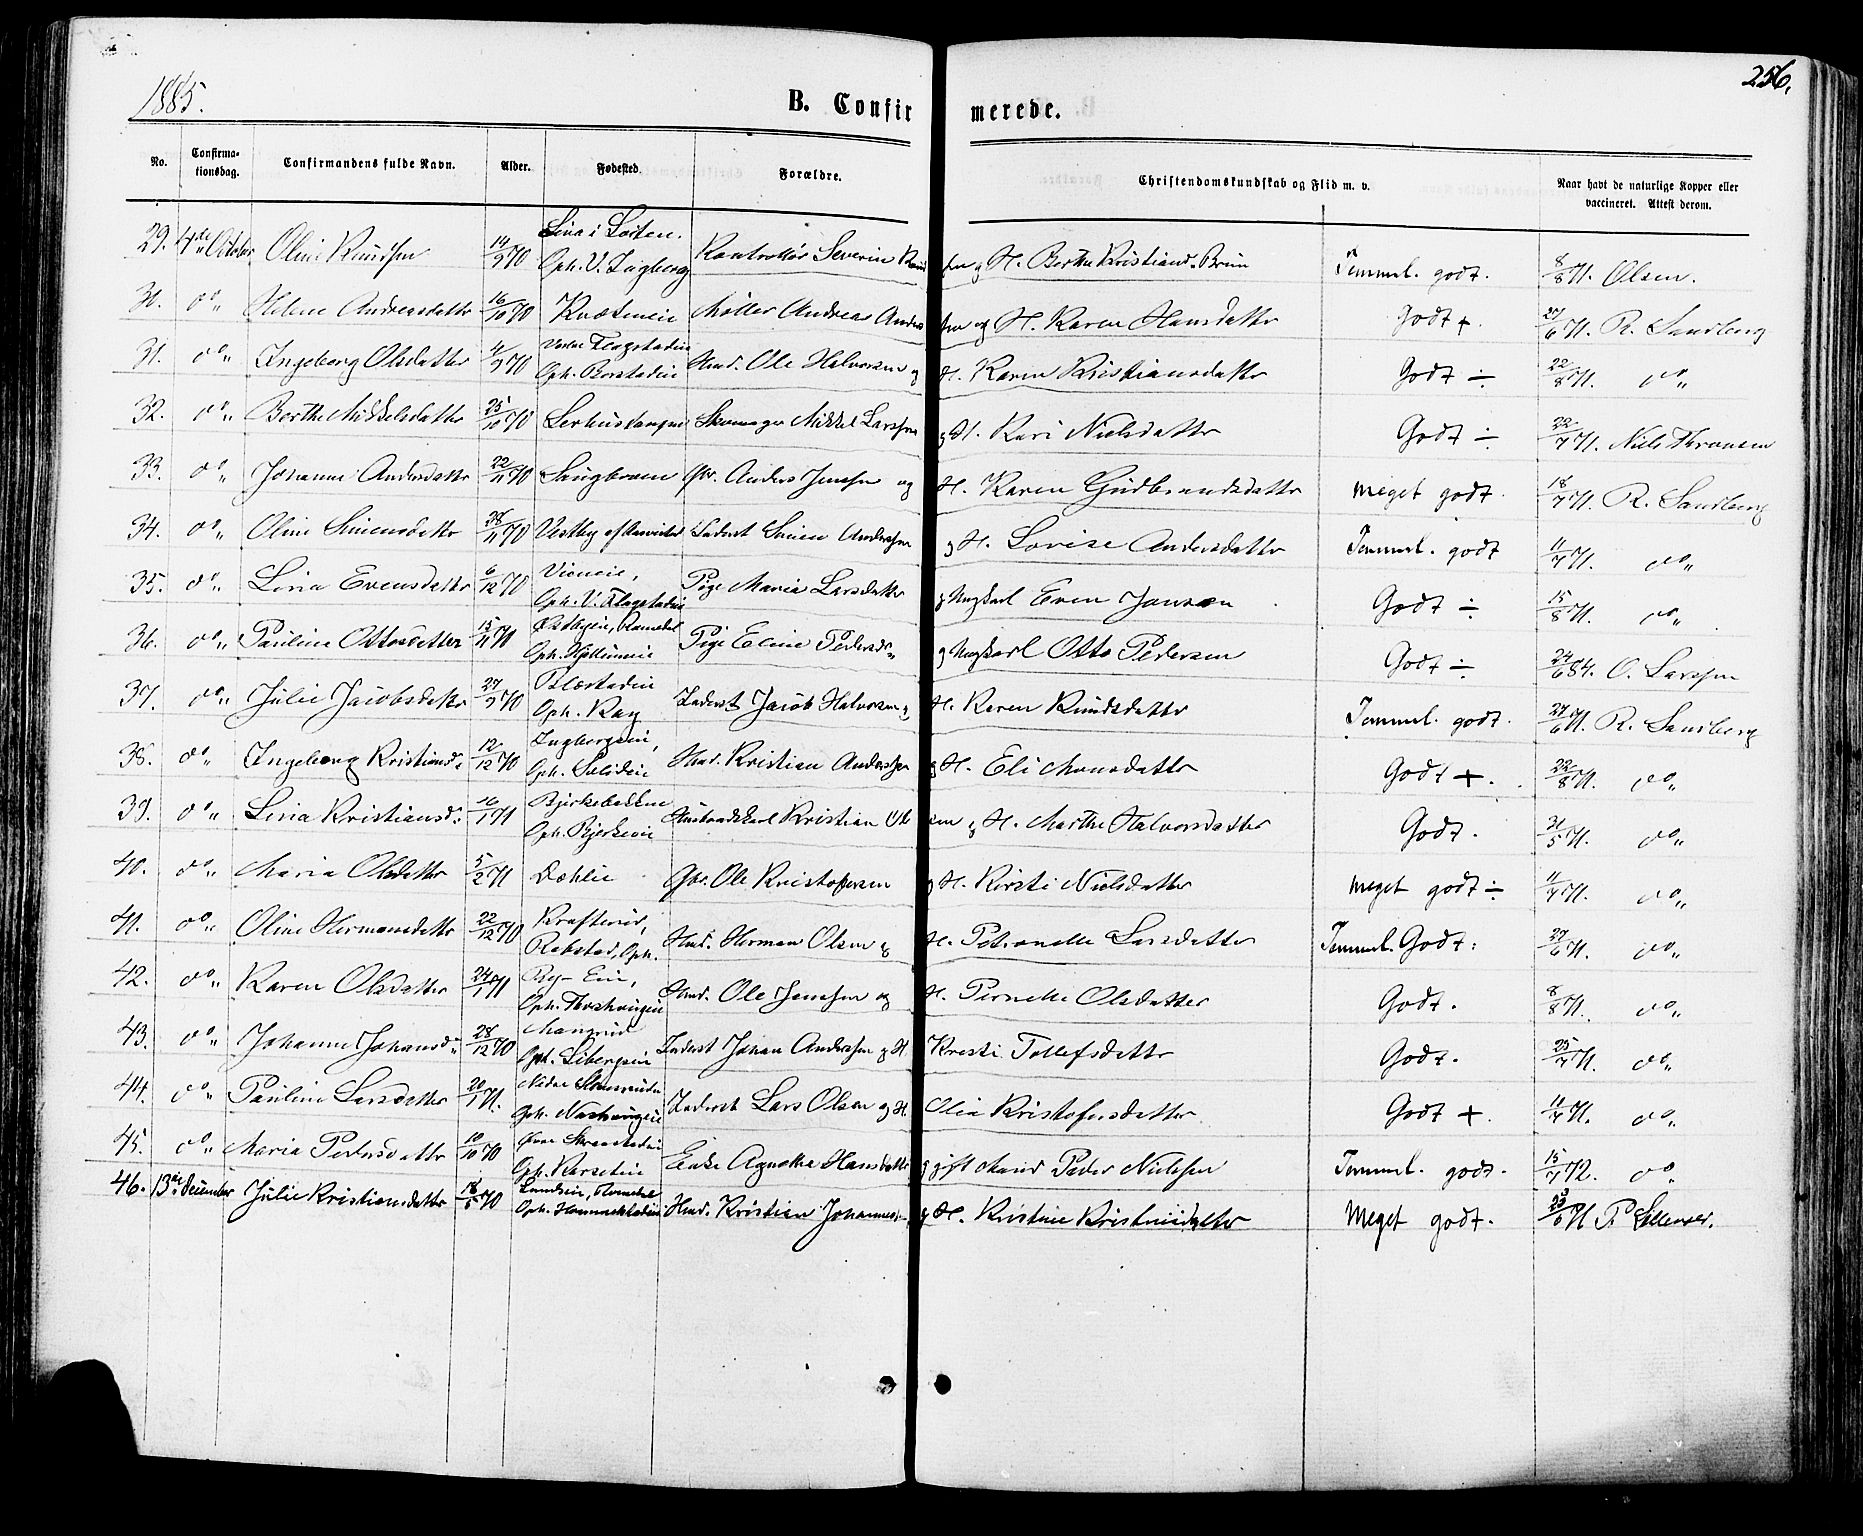 1885.
B. Confirmerede.
256.
No. Confirmationsdag. Confirmandens fulde Navn. Alder. Fødested. Forældre. Christendomskundskab og Flid m. v. Naar havt de naturlige Kopper eller vaccineret. Attest derom.
29. 4de October Oline Knudsen 14/9 70 Lena i Løiten. Oph. V. Ingberg Kontrollør Severin Knudsen og H. Berthe Kristiansd. Brun Temmel. godt. 8/8 71. Olsen.
31. do Helene Andreasdatter 16/10 70 Møller Andreas Andersen og H. Karen Hansdatter Godt + 27/6 71. R. Sandberg
31. do Ingeborg Olsdatter 4/9 70 Vestre Flagstadeie Oph. Borstadeie Hmd. Ole Halvorsen og H. Karen Kristiansdatter Godt ÷ 22/8 71. do
32. do Berthe Mikkelsdatter 25/10 70 Skomager Mikkel Larssen og H. Kari Nielsdatter Godt ÷ 22/7 71. Niels Thronsen
33. do Johanne Andersdatter 22/11 70 Gbr. Anders Jenssen og H. Karen Gudbrandsdatter Meget godt. 18/7 71. R. Sandberg
34. do Oline Simensdatter 28/11 70 Vestby af Inderst Simen Anderssen og H. Lovise Andersdatter Temmel. godt 11/7 71. do
35. do Lina Evensdatter 6/12 70 Vieneie, Oph. V. Flagstadeie Pige Maria Larsdatter og Ungkarl Even Jonsen Godt ÷ 15/8 71. do
36. do Pauline Ottosdatter 15/11 71 Østbyeie, Romedal Oph. Hjellumeie Pige Eline Pedersd. og Ungkarl Otto Pedersen Godt ÷ 24/6 84. O. Larssen
37. do Julie Jacobsdatter 27/9 70 Blæstadeie Oph. Inderst Jacob Halvorsen og H. Karen Knudsdatter Temmel. godt. 27/6 71. R. Sandberg
38. do Ingeborg Kristiansd. 12/12 70 Ingbergseie, Oph. Hmd. Kristian Anderssen og H. Eli Monsdatter Godt +. 22/8 71. do
39. do Lina Kristiansd. 16/1 71 Bjerkebakken Oph. Bjerkeeie Husmandskarl Kristian Olsen og H. Marthe Halvorsdatter Godt. 31/5 71. do
40. do Maria Olsdatter 5/2 71 Dæhlie Gbr. Ole Kristofersen og H. Kirsti Nielsdatter Meget godt ÷ 11/7 71. do
41. do Oline Hermansdatter 22/12 70 Rabstad, Oph. Hmd. Herman Olsen og H. Petronelle Larsdatter Temmel. Godt. 27/6 71. do
42. do Karen Olsdatter 24/1 71 By-Eie, Oph. Hmd. Ole Jenssen og H. Pernelle Olsdatter Godt. 8/8 71. do
43. do Johanne Johansd. 28/12 70 Oph. Libergseie Inderst Johan Anderssen og H. Kristi Tollefsdatter Godt. 25/7 71. do
44. do Pauline Larsdatter 20/1 71. Nedre Oph. Inderst Lars Olsen og H. Olia Kristofersdatter Godt +. 11/7 71. do
45. do Maria Pedersdatter 10/10 70 Øvre Skraastadeie Oph. Karseteie Enke Agnethe Hansdatter og gift Mand Peder Nielsen Temmel. godt. 15/7 72. do
46. 13de December Julie Kristiansdatter 18/5 70 Lundseie, Romedal Oph. Hommelstadeie Hmd. Kristian Johannes. og H. Kristine Kristiansdatter Meget godt. 23/6 71 P.